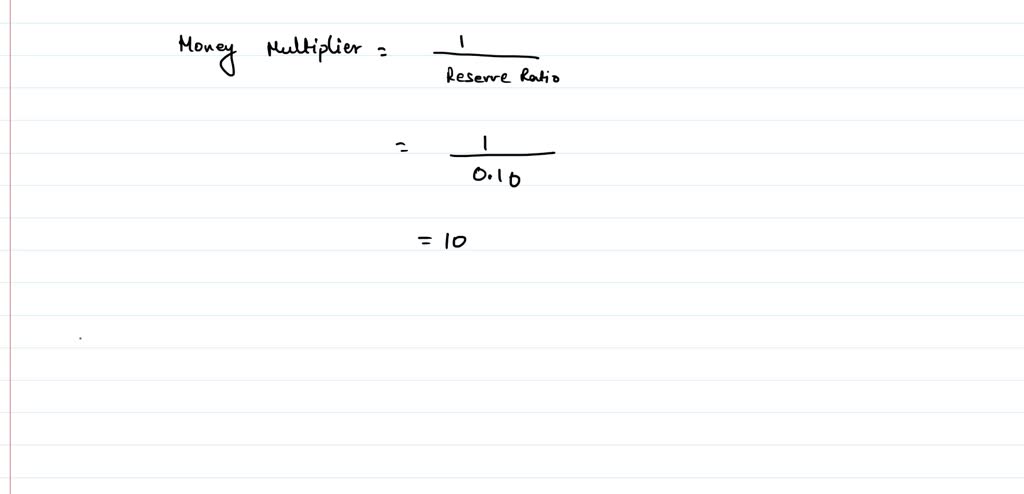 Money Multiplier = 1
Reserve Ratio
= 1
0.10
= 10